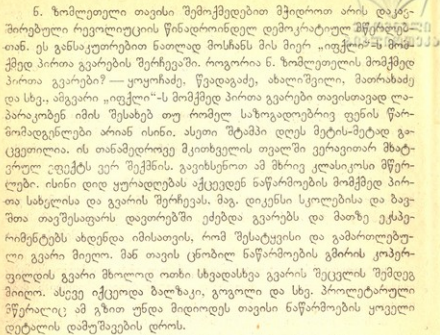 ნ. ზომლეთელი თავისი შემოქმედებით მჭიდროთ არის დაკავ-
შირებული რევოლიუციის წინადროინდელ დემოკრატიულ მწერლებ-
თან. ეს განსაკუთრებით ნათლად მოსჩანს მის მიერ „იფქლი“-ს მომ-
ქმედ პირთა გვარების შერჩევაში. როგორია ნ. ზომლეთელის მომქმედ
პირთა გვარები? — ყოყოჩაძე, წვადაგაძე, ახალიშვილი, მათრახაძე
და სხვ., ამგვარი „იფქლი“-ს მომქმედ პირთა გვარები თავისთავად ლა-
პარაკობენ იმის შესახებ თუ რომელ საზოგადოებრივ ფენის წარ-
მომადგენლები არიან ისინი. ასეთი შტამპი დღეს მეტის-მეტად გა-
ცვეთილია. ის თანამედროვე მკითხველის თვალში ვერავითარ მხატ-
ვრულ ეფექტს ვერ შექმნის. გავიხსენოთ ამ მხრივ კლასიკოსი მწერ-
ლები. ისინი დიდ ყურადღებას აქცევდენ ნაწარმოების მომქმედ პირ-
თა სახელისა და გვარის შერჩევას, მაგ. დიკენსი სკოლებისა და ბავ-
შთა თავშესაფარს დავთრებში ეძებდა გვარებს და მათზე ექსპე-
რიმენტებს ახდენდა იმისათვის, რომ შესატყვისი და გამართლებუ-
ლი გვარი მიეღო. მან თავის ცნობილ ნაწარმოების გმირის კოპერ-
ფილდის გვარი მხოლოდ ოთხი სხვადასხვა გვარის შეცვლის შემდეგ
მიიღო. ასევე იქცეოდა ბალზაკი, გოგოლი და სხვ. პროლეტარული
მწერალიც ამ გზით უნდა მიდიოდეს თავისი ნაწარმოების ყოველი
დეტალის დამუშავების დროს.